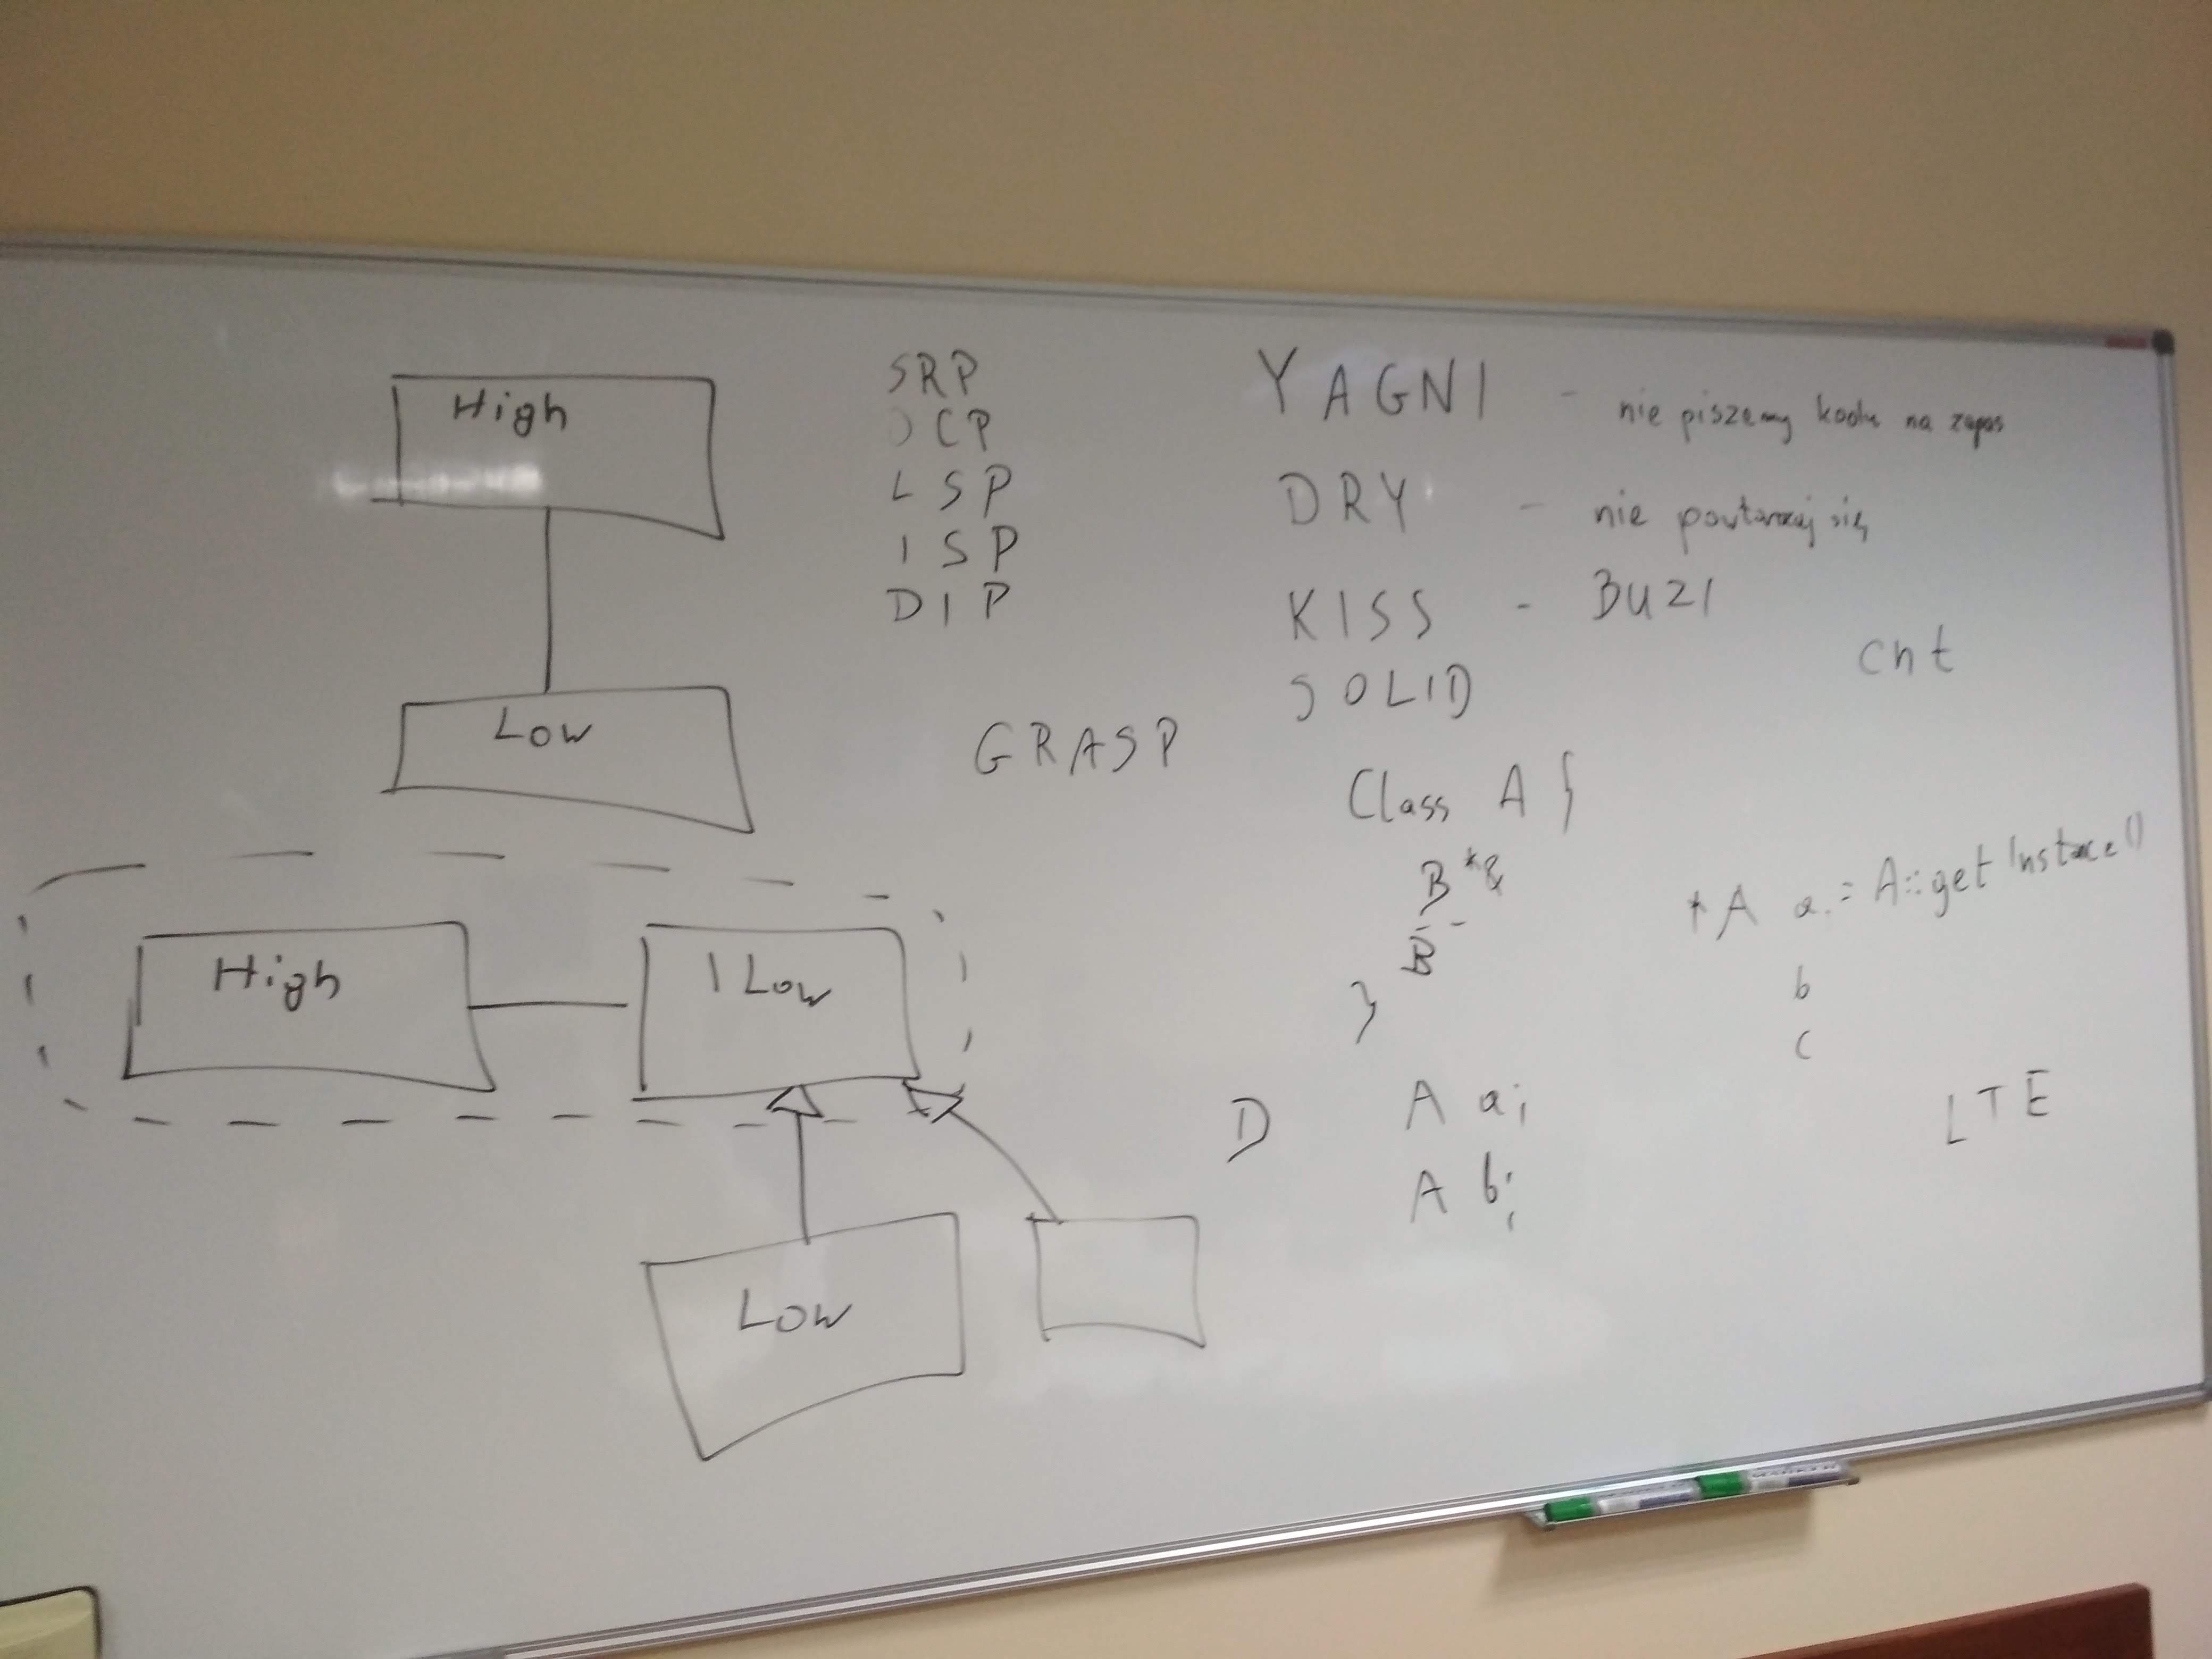 High
Low
High
I Low
Low
SRP
OCP
LSP
ISP
DIP
GRASP
YAGNI - nie piszemy kodu na zapas
DRY - nie powtarzaj się
KISS - BUZI
SOLID
cnt
Class A {
B *&
}
* A a = A::getInstace()
b
c
D
A a;
A b;
LTE